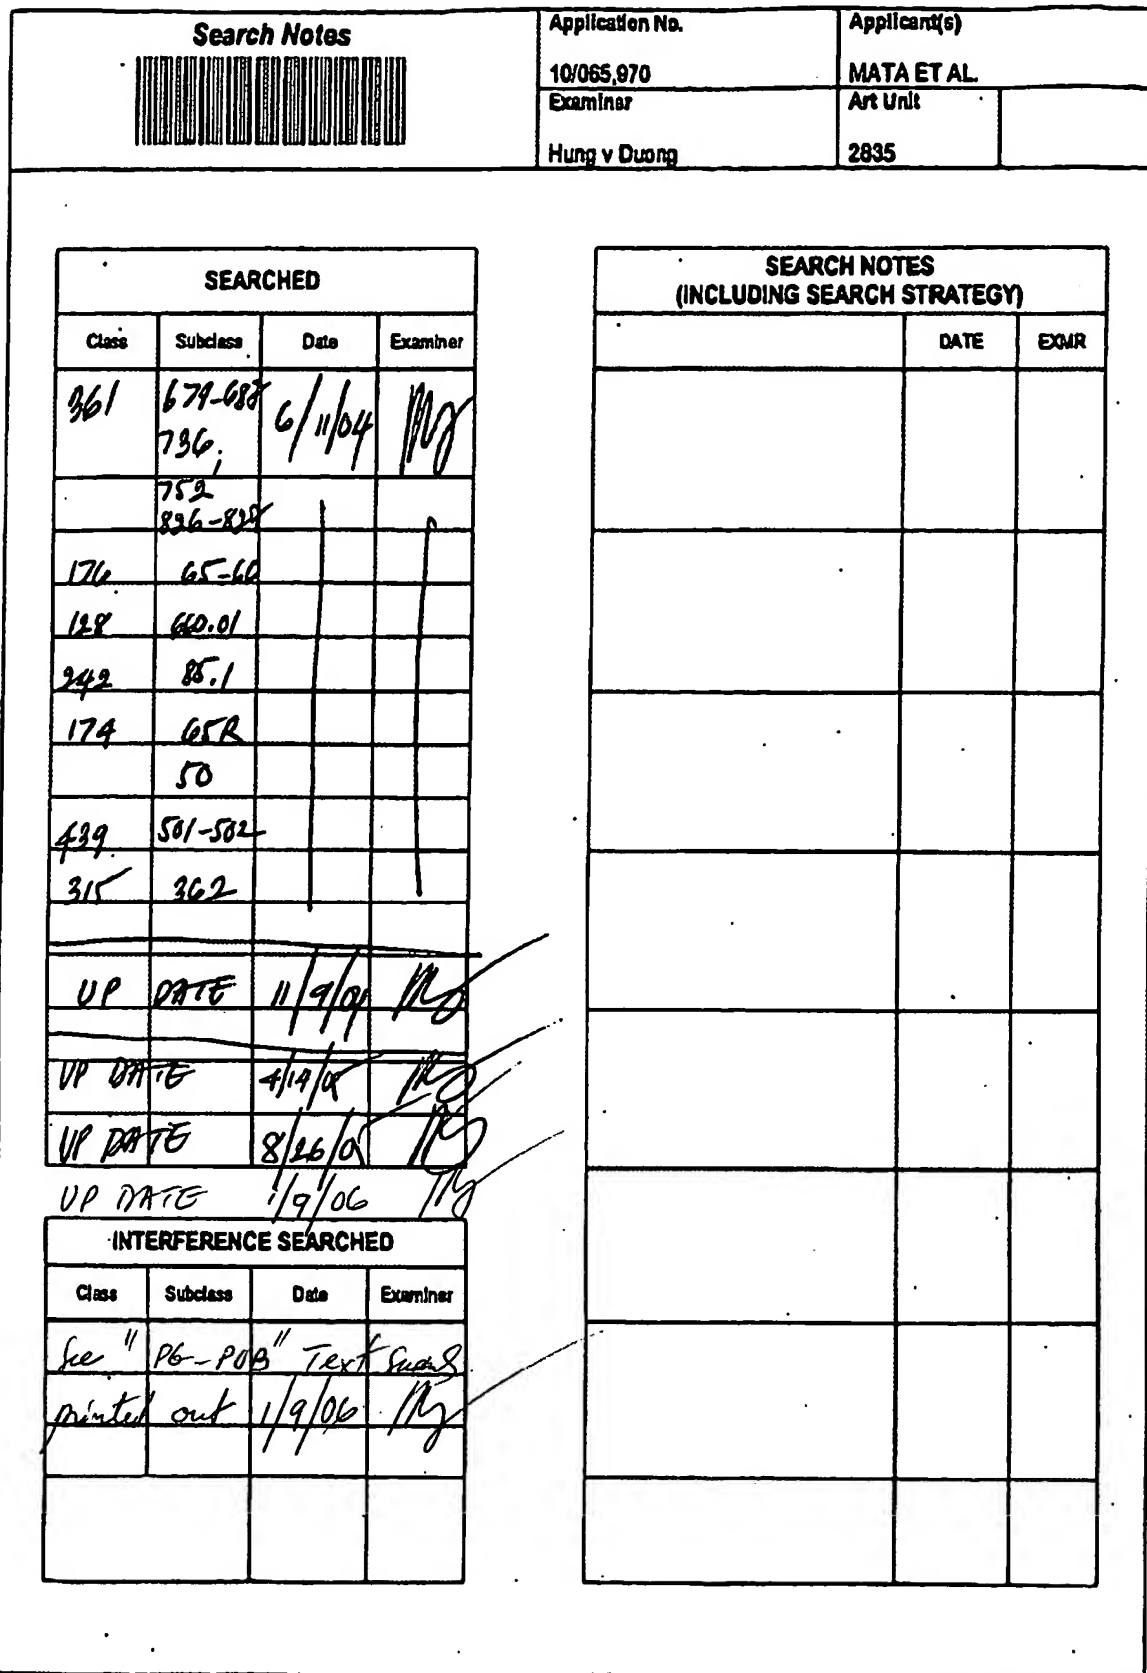 Search Notes
Application No.
Applicant(s)
10/065,970
MATA ET AL.
Examiner
Art Unit
Hung v Duong
2835
SEARCHED
Class Subclass Date Examiner
361 679-688 6/11/04
736,
752
826-828
176 65-66
128 660.01
242 85.1
174 65R
50
439 501-502
315 362
UP DATE 11/9/04
UP DATE 4/19/05
UP DATE 8/26/05
UP DATE 1/9/06
INTERFERENCE SEARCHED
Class Subclass Date Examiner
See "PG-PUB" Text Search
printed out 1/9/06
SEARCH NOTES
(INCLUDING SEARCH STRATEGY)
DATE EXMR